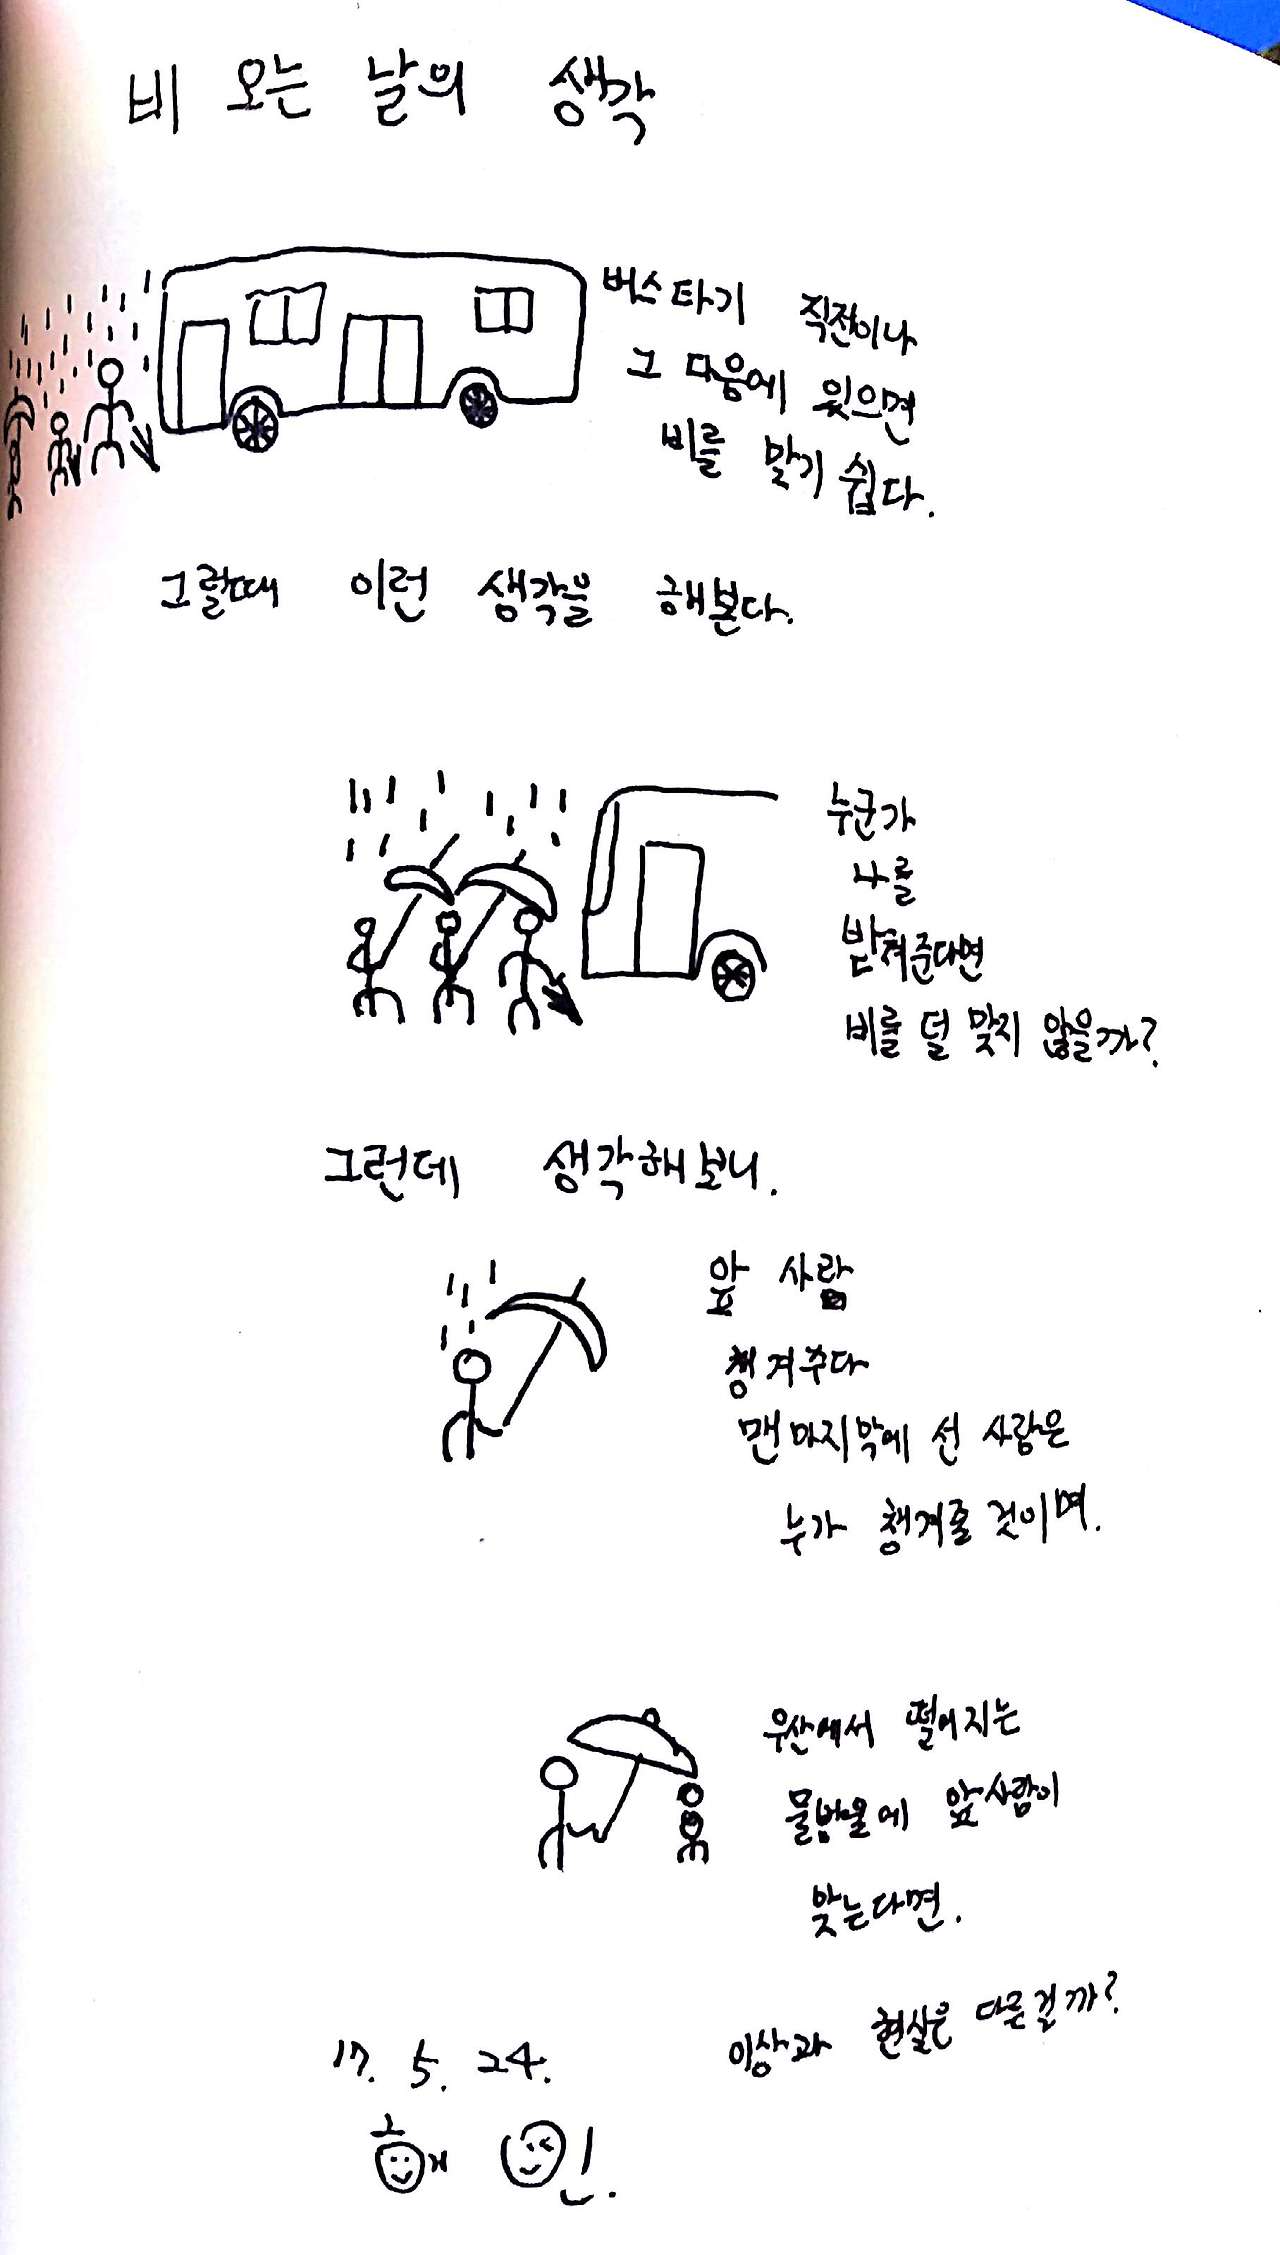 비 오는 날의 생각
버스타기 직전이나
그 다음에 있으면
비를 맞기 쉽다.
그럴때 이런 생각을 해본다.
누군가
나를
받쳐준다면
비를 덜 맞지 않을까?
그런데 생각해보니.
앞 사람
챙겨주다
맨 마지막에 선 사람은
누가 챙겨줄 것이며.
우산에서 떨어지는
물방울에 앞사람이
맞는다면.
이상과 현실은 다른걸까?
17. 5. 24.